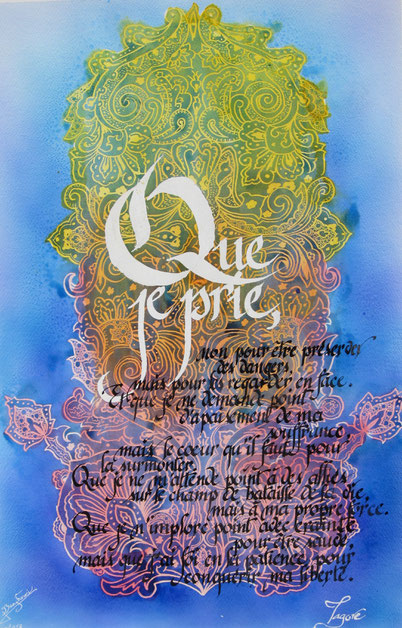 Que
je prie,
non pour être préservé
des dangers,
mais pour les regarder en face.
Et que je ne demande point
d'apaisement de ma
souffrance,
mais le coeur qu'il faut pour
la surmonter.
Que je ne m'attende point à des alliés
sur le champ de bataille de la vie,
mais à ma propre force.
Que je n'implore point avec crainte
pour être sauvé,
mais que j'ai foi en la patience pour
conquérir ma liberté.
Tagore